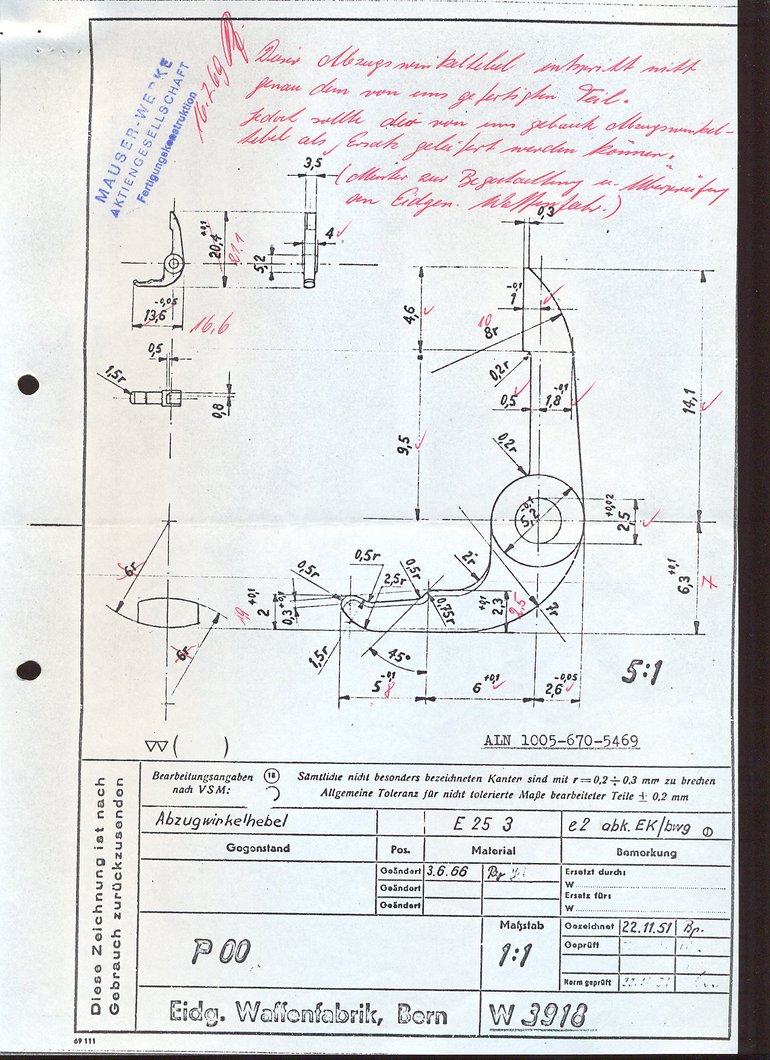 MAUSER-WERKE
AKTIENGESELLSCHAFT
Fertigungskonstruktion
16.7.69
Dieser Abzugswinkelhebel entspricht nicht
genau dem von uns gefertigten Teil.
Jedoch sollte der von uns gebaute Abzugswinkel-
hebel als Ersatz geliefert werden können.
(Muster zur Begutachtung u. Überprüfung
an Eidgen. Waffenfabr.)
3,5
4
5,2
20,4 +0,1
21.1
13,6 -0,05
16,6
0,5
1,5r
0,8
0,3
1 -0,1
4,6
10
8r
0,2r
0,5
1,8 -0,1
14,1
9,5
0,2r
5,2 -0,1
2,5 +0,02
6r
6r
19
2 +0,1
0,3 +0,1
0,5r
0,5r
2,5r
0,5r
2r
0,75r
2,3 +0,1
2,5
7r
6,3 +0,1
7
1,5r
45°
5 -0,1
8
6 +0,1
2,6 -0,05
5:1
( )
ALN 1005-670-5469
Bearbeitungsangaben 18 Sämtliche nicht besonders bezeichneten Kanten sind mit r = 0,2 ÷ 0,3 mm zu brechen
nach VSM: Allgemeine Toleranz für nicht tolerierte Maße bearbeiteter Teile ± 0,2 mm
Abzugwinkelhebel E 25 3 e2 abk. EK/bwg 1
Gegenstand Pos. Material Bemerkung
Geändert 3.6.66 Ersetzt durch:
W
Geändert Ersatz für:
Geändert W
P 00 Maßstab Gezeichnet 22.11.51 Bp.
1:1 Geprüft
Norm geprüft
Eidg. Waffenfabrik, Bern W 3918
Diese Zeichnung ist nach
Gebrauch zurückzusenden
69 111